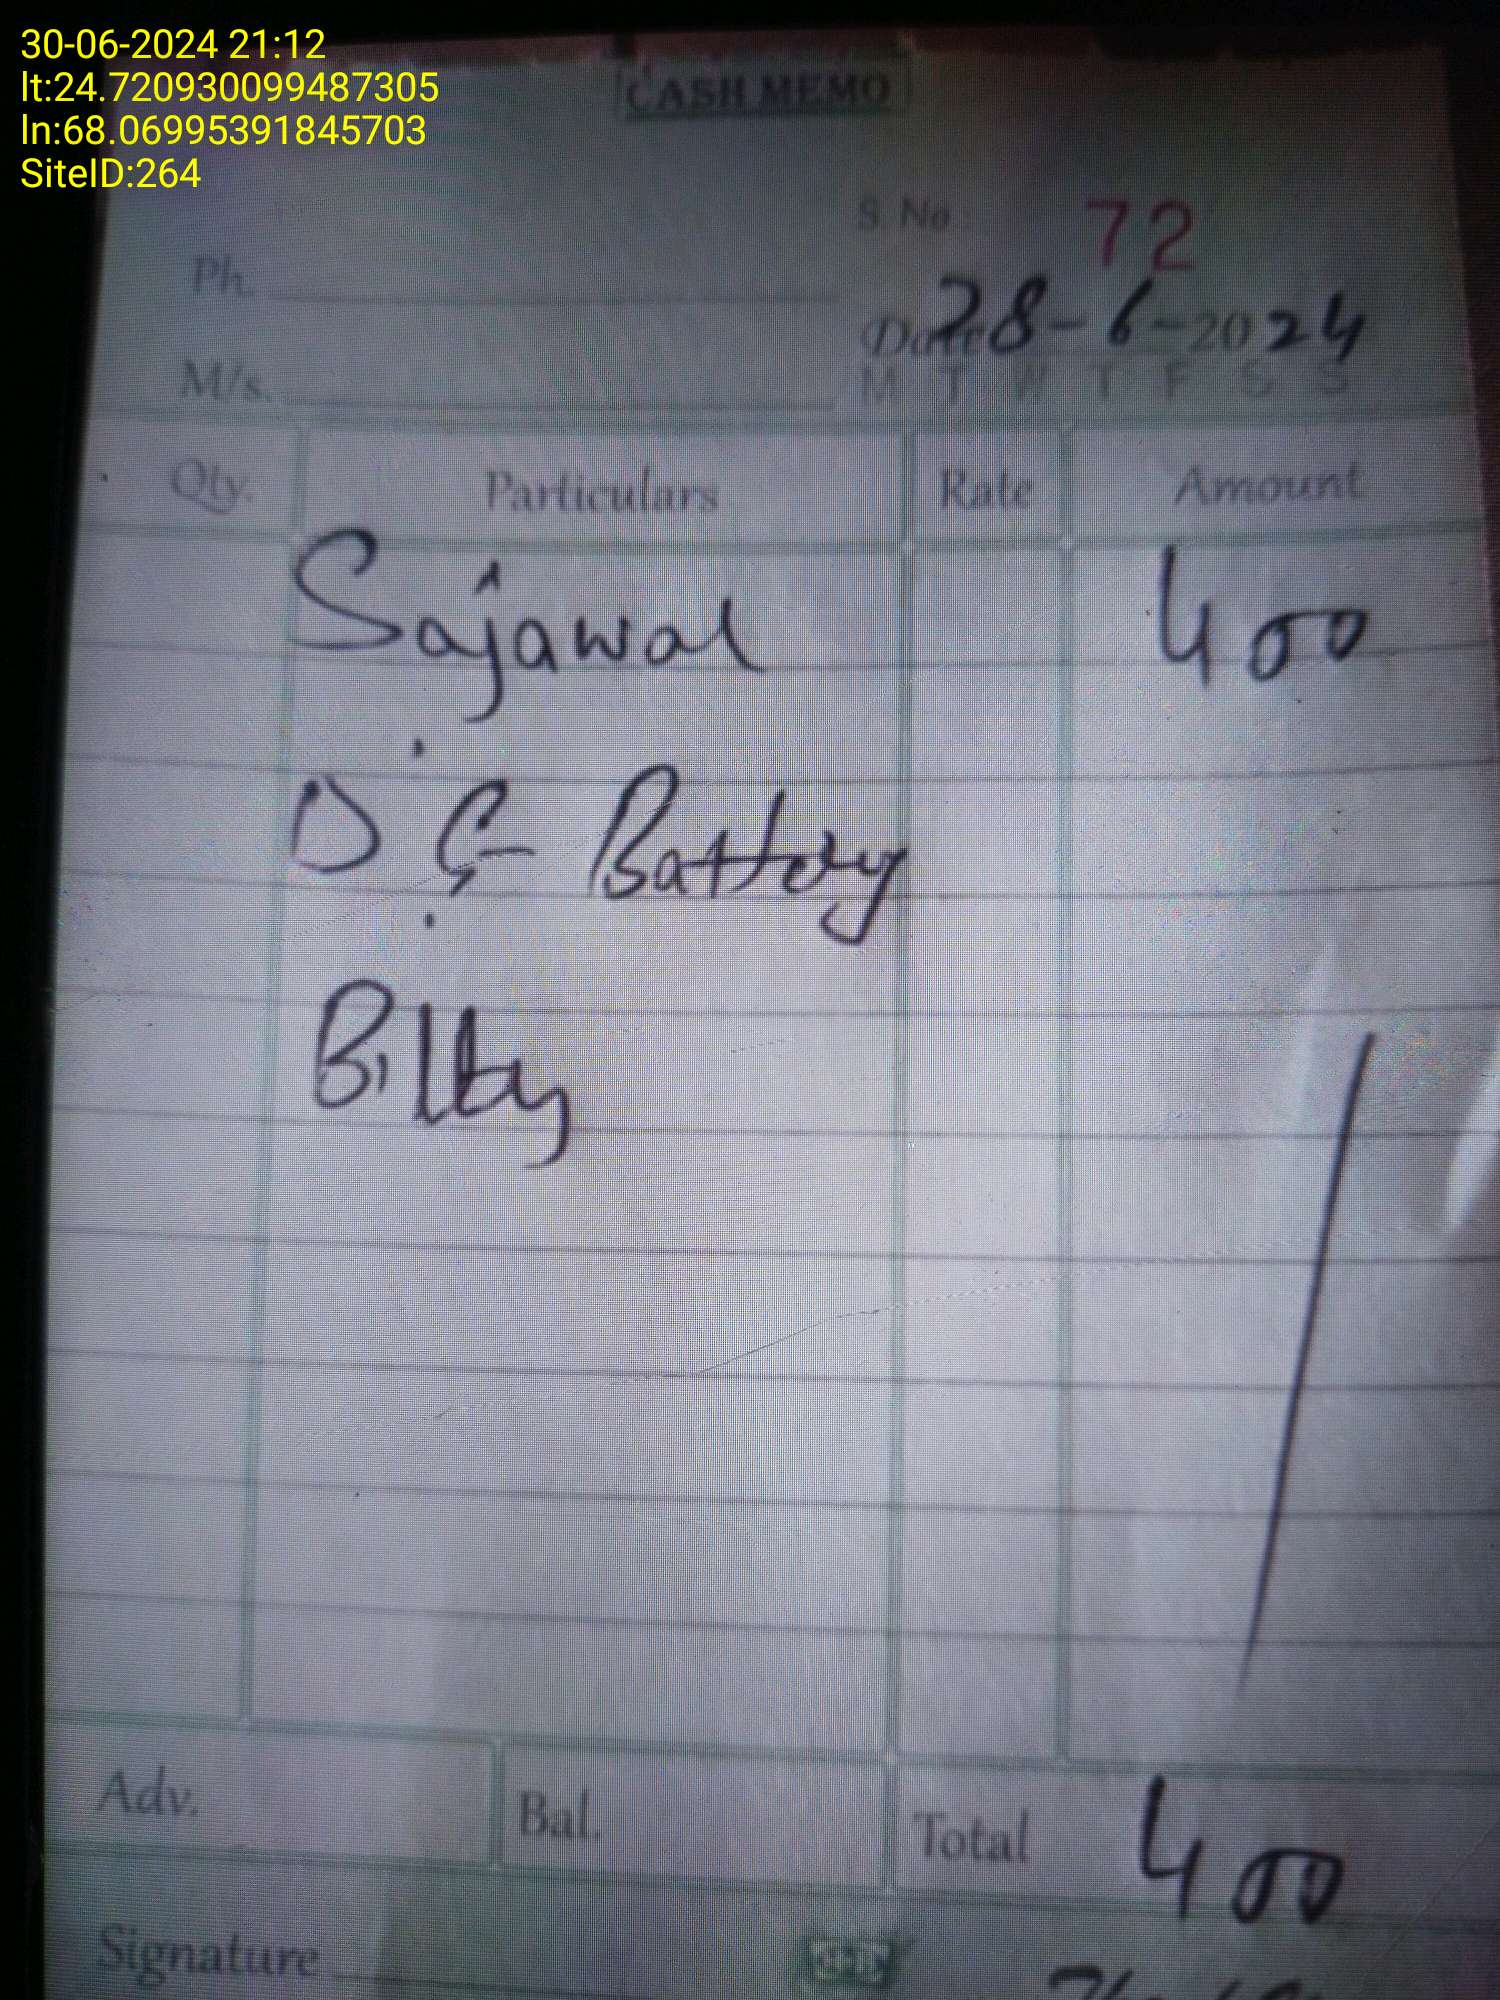 30-06-2024 21:12
lt:24.720930099487305
ln:68.06995391845703
SiteID:264
CASH MEMO
S. No. 72
Ph.
Date 28-6-2024
M/s.
M T W T F S S
Qty. Particulars Rate Amount
Sajawal 400
D.G Battery
Bilty
Adv. Bal. Total 400
Signature